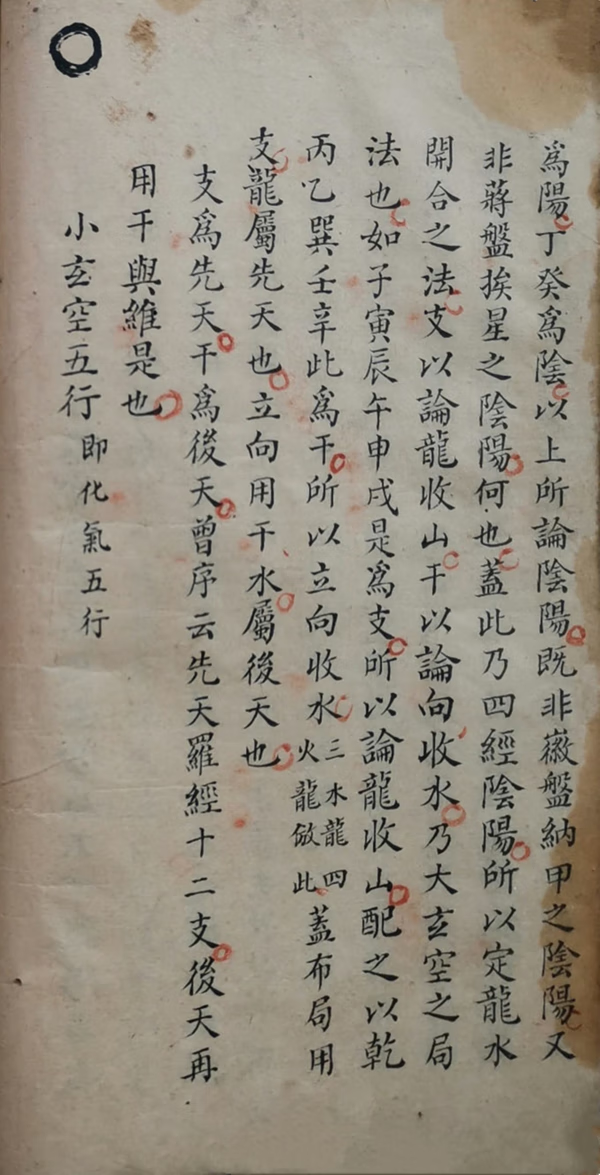 爲陽丁癸爲陰以上所論陰陽既非徽盤納甲之陰陽又
非蔣盤挨星之陰陽何也蓋此乃四經陰陽所以定龍水
開合之法支以論龍收山干以論向收水乃大玄空之局
法也如子寅辰午申戌是爲支所以論龍收山配之以乾
丙乙巽壬辛此爲干所以立向收水三水龍四火龍倣此蓋布局用
支龍屬先天也立向用干水屬後天也
支爲先天干爲後天曾序云先天羅經十二支後天再
用干與維是也
小玄空五行即化氣五行